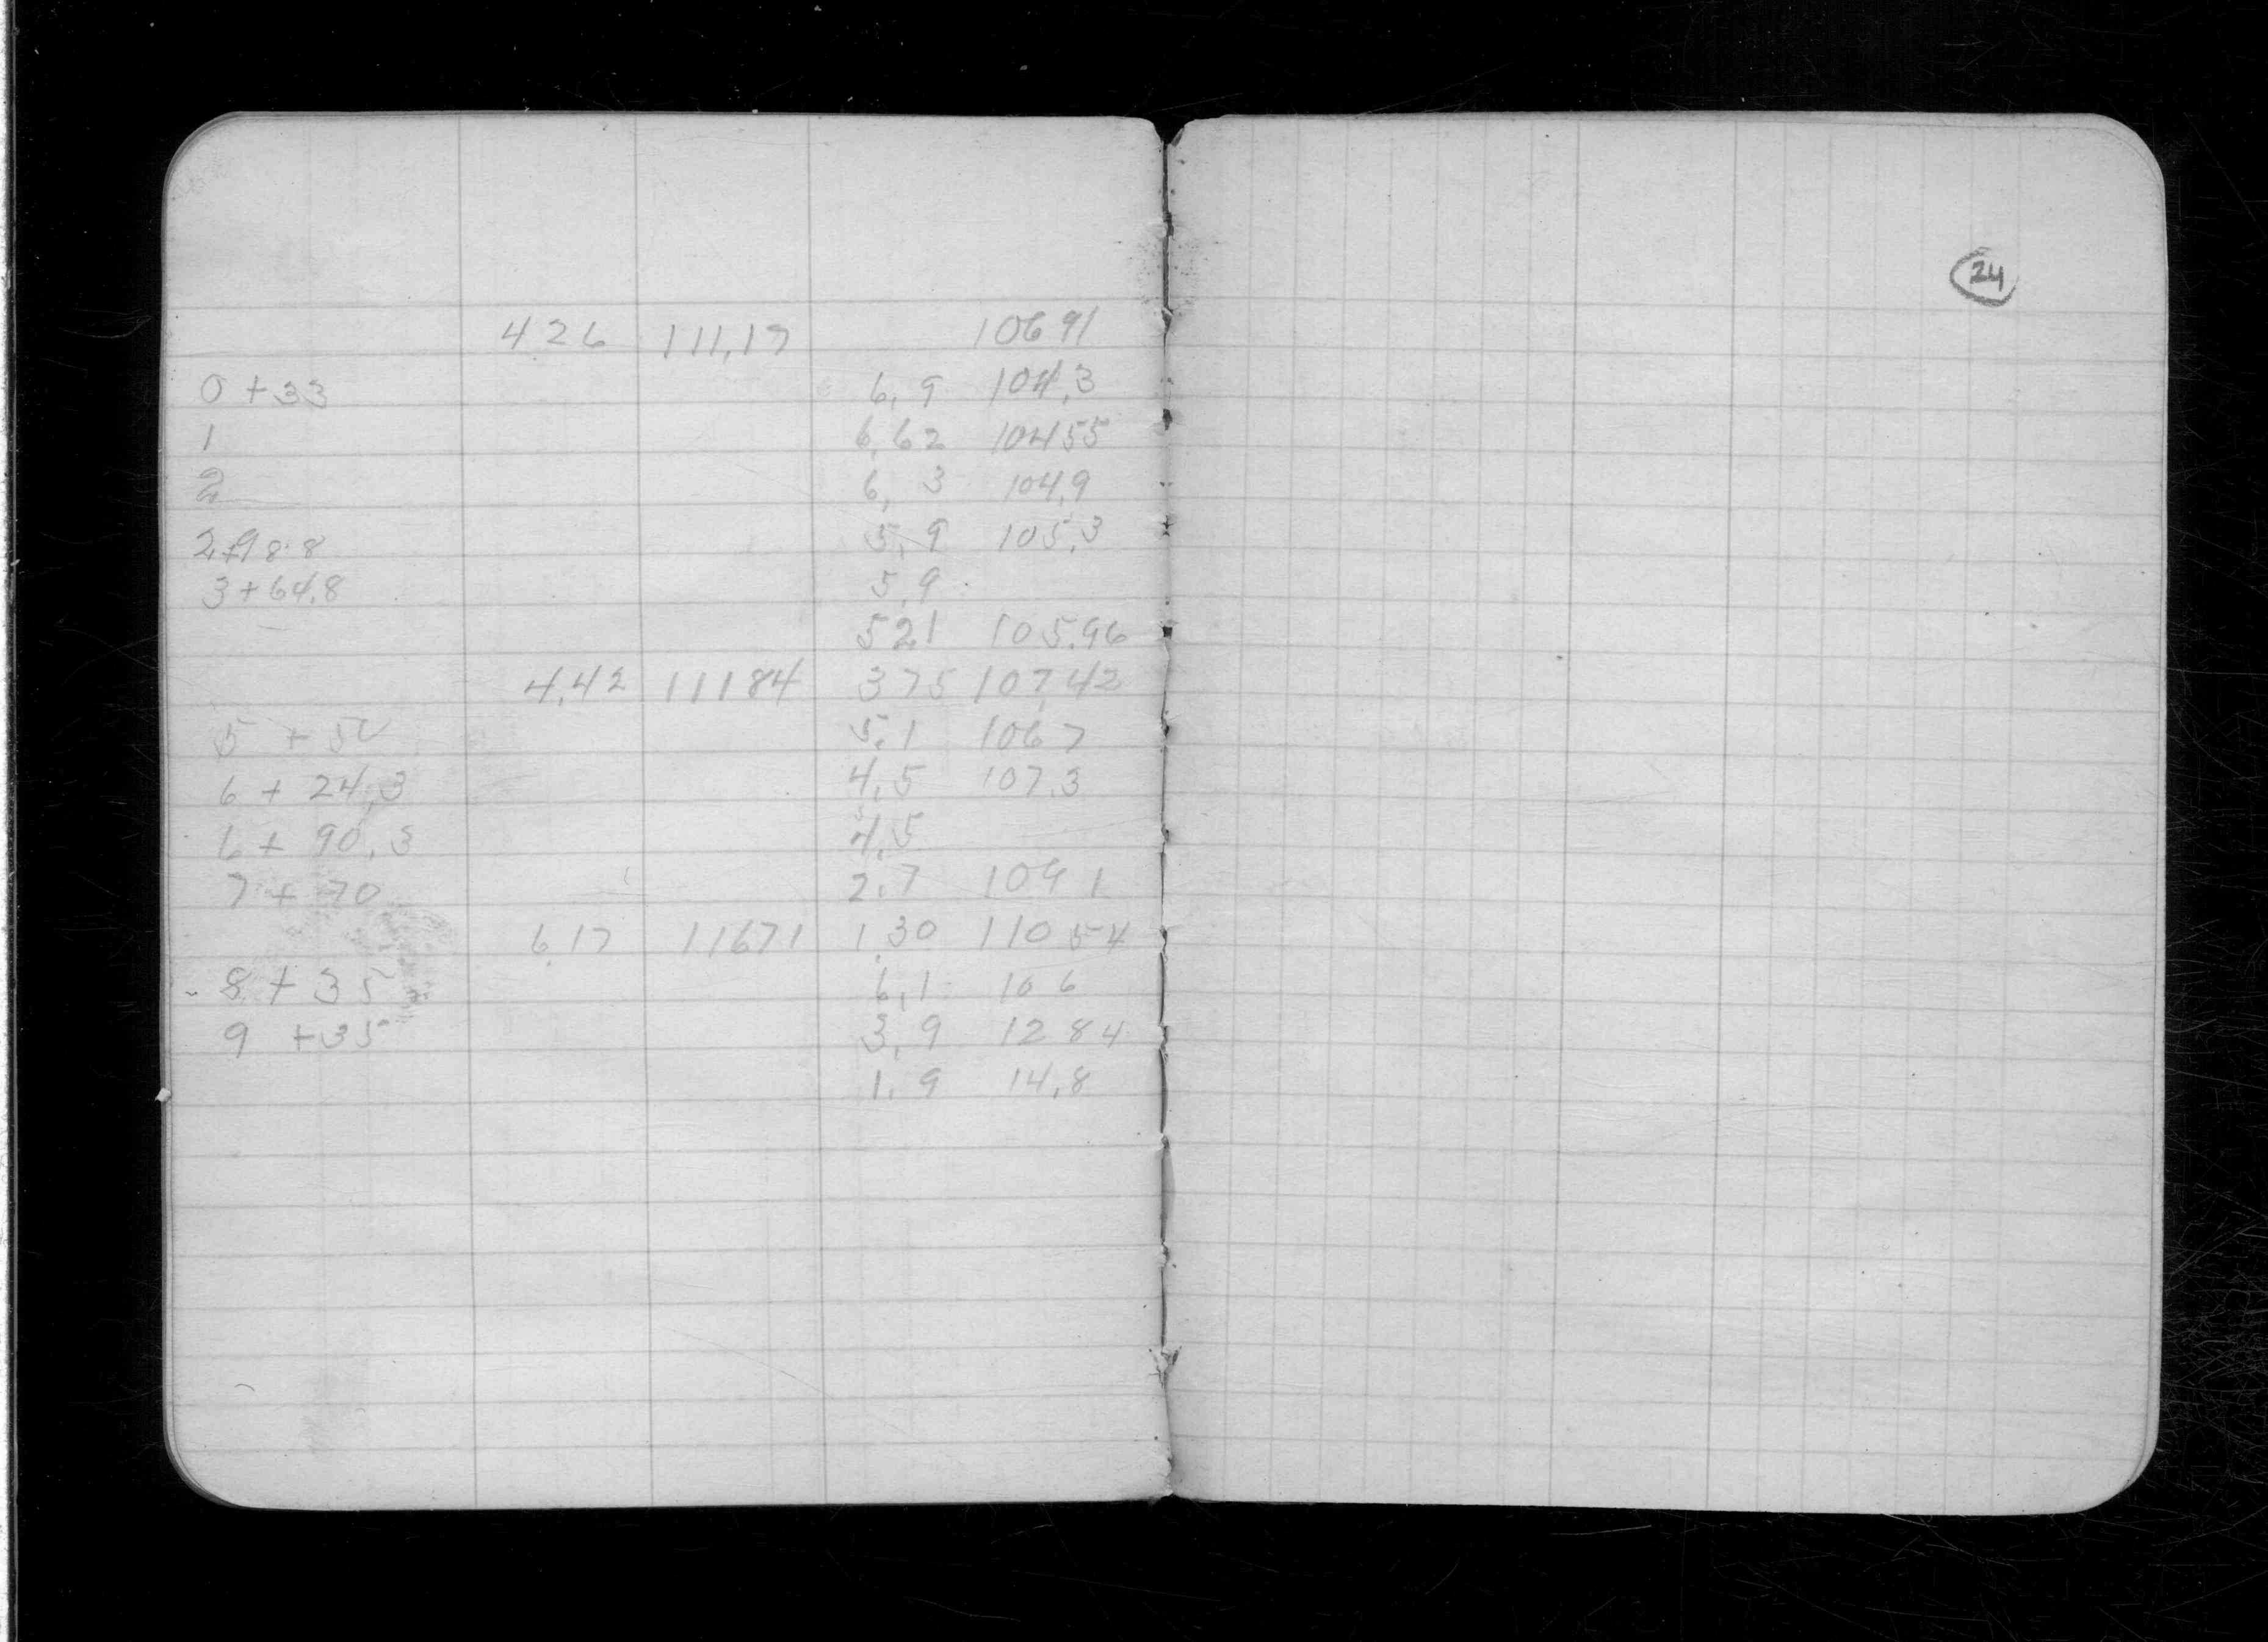 4.26 111,17 106 91
0 +33 6,9 104,3
1 6,62 104 55
2 6, 3 104,9
2+98.8 5,9 105,3
3+64,8 5,9
5 21 105,96
4,42 111 84 3 75 107,42
5 + 50 5,1 106 7
6 + 24,3 4,5 107.3
6 + 90,3 4,5
7 + 70 2,7 109 1
6.17 116 71 1.30 110 54
8 + 35 6,1 10 6
9 +35 3,9 12 8 4
1.9 14,8
24